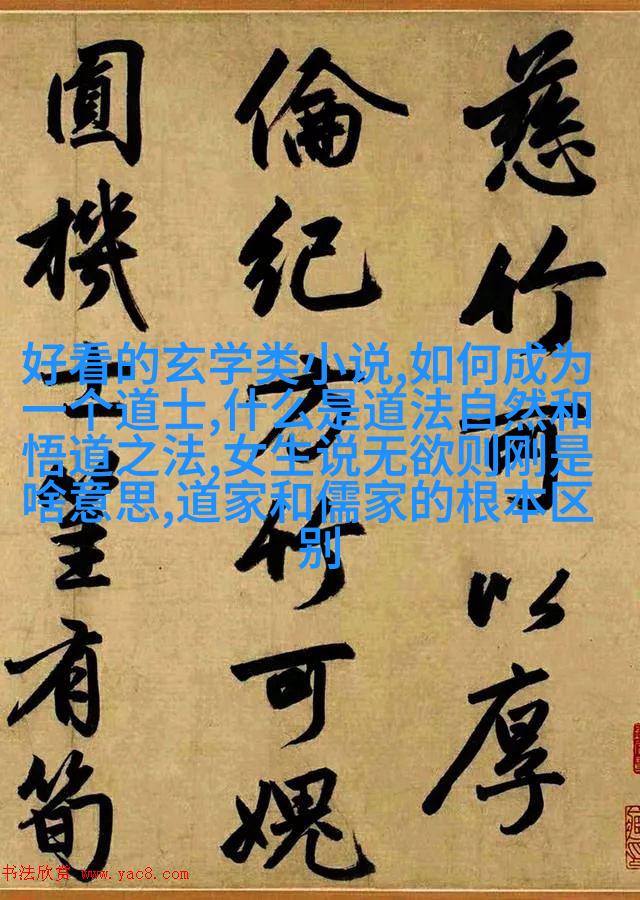 慈竹可以厚
倫紀方竹可愧
圓機士有筍
好看的玄学类小说,如何成为
一个道士,什么是道法自然和
悟道之法,女生说无欲则刚是
啥意思,道家和儒家的根本区
别
书法欣赏 www.yac8.com